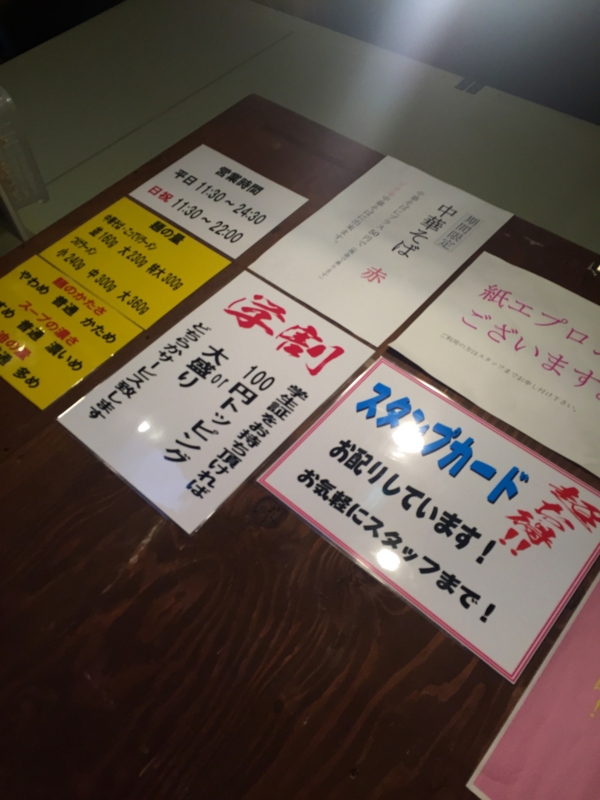 営業時間
平日 11:30～24:30
日祝 11:30～22:00
麺の量
並 160g 大 230g 特大 300g
小 240g 中 300g 大 360g
麺のかたさ
やわめ 普通 かため
スープの濃さ
普通 濃いめ
多め
期間限定
中華そば 赤
紙エプロン
ございます。
ご利用の方はスタッフまでお申し付け下さい。
学割
学生証をお持ち頂ければ
100円トッピング
or
大盛り
どちらかサービス致します
スタンプカード
お配りしています！
お気軽にスタッフまで！
超お得!!